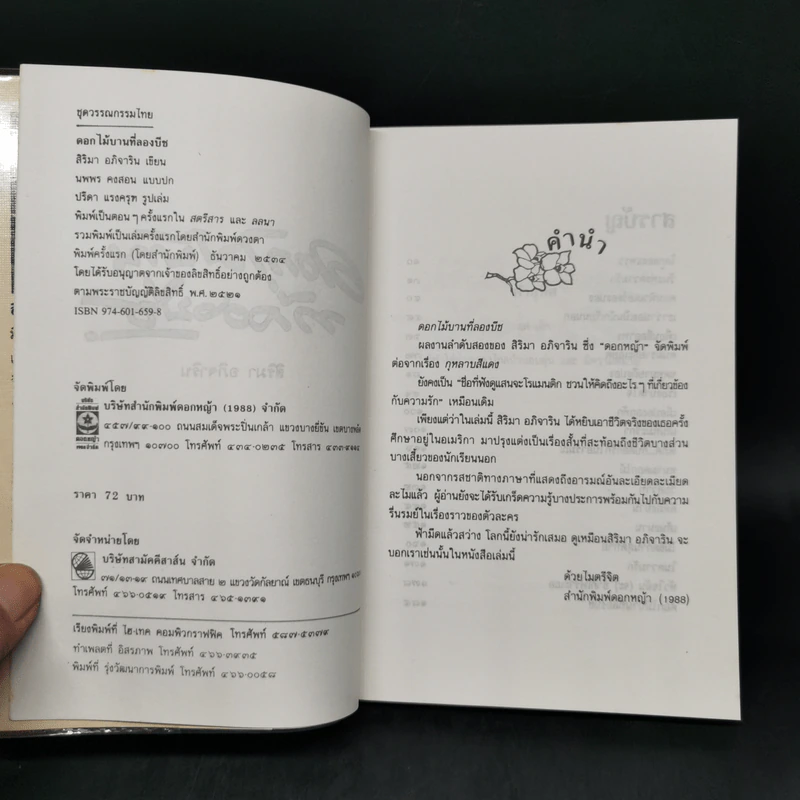 ชุดวรรณกรรมไทย
ดอกไม้บานที่ลองบีช
สิริมา อภิจาริน เขียน
นพพร คงสอน แบบปก
ปรีดา แรงครุฑ รูปเล่ม
พิมพ์เป็นตอนๆ ครั้งแรกใน สตรีสาร และ ลลนา
รวมพิมพ์เป็นเล่มครั้งแรกโดยสำนักพิมพ์ดวงตา
พิมพ์ครั้งแรก (โดยสำนักพิมพ์) ธันวาคม ๒๕๓๔
โดยได้รับอนุญาตจากเจ้าของลิขสิทธิ์อย่างถูกต้อง
ตามพระราชบัญญัติลิขสิทธิ์ พ.ศ. ๒๕๒๑
ISBN 974-601-659-8
จัดพิมพ์โดย
บริษัทสำนักพิมพ์ดอกหญ้า (1988) จำกัด
๔๕๗/๙๙-๑๐๐ ถนนสมเด็จพระปิ่นเกล้า แขวงบางยี่ขัน เขตบางพลัด
กรุงเทพฯ ๑๐๗๐๐ โทรศัพท์ ๔๓๔-๐๒๓๕ โทรสาร
ราคา 72 บาท
จัดจำหน่ายโดย
บริษัทสามัคคีสาส์น จำกัด
๗๑/๑๓-๑๙ ถนนเทศบาลสาย ๒ แขวงวัดกัลยาณ์ เขตธนบุรี กรุงเทพฯ
โทรศัพท์ ๔๖๖-๐๕๑๙ โทรสาร ๔๖๕-๑๓๙๑
เรียงพิมพ์ที่ ไฮ-เทค คอมพิวกราฟฟิค โทรศัพท์ ๕๘๗-๕๓๗๙
ทำเพลตที่ อิสรภาพ โทรศัพท์ ๔๖๖-๓๙๓๕
พิมพ์ที่ รุ่งวัฒนาการพิมพ์ โทรศัพท์ ๔๖๖-๐๐๕๘
คำนำ
ดอกไม้บานที่ลองบีช
ผลงานลำดับสองของ สิริมา อภิจาริน ซึ่ง "ดอกหญ้า" จัดพิมพ์
ต่อจากเรื่อง กุหลาบสีแดง
ยังคงเป็น "ชื่อที่ฟังดูแสนจะโรแมนติก ชวนให้คิดถึงอะไรๆ ที่เกี่ยวข้อง
กับความรัก" เหมือนเดิม
เพียงแต่ว่าในเล่มนี้ สิริมา อภิจาริน ได้หยิบเอาชีวิตจริงของเธอครั้ง
ศึกษาอยู่ในอเมริกา มาปรุงแต่งเป็นเรื่องสั้นที่สะท้อนถึงชีวิตบางส่วน
บางเสี้ยวของนักเรียนนอก
นอกจากรสชาติทางภาษาที่แสดงถึงอารมณ์อันละเอียดละเมียด
ละไมแล้ว ผู้อ่านยังจะได้รับเกร็ดความรู้บางประการพร้อมกันไปกับความ
รื่นรมย์ในเรื่องราวของตัวละคร
ฟ้ามืดแล้วสว่าง โลกนี้ยังน่ารักเสมอ ดูเหมือนสิริมา อภิจาริน จะ
บอกเราเช่นนั้นในหนังสือเล่มนี้
ด้วยไมตรีจิต
สำนักพิมพ์ดอกหญ้า (1988)